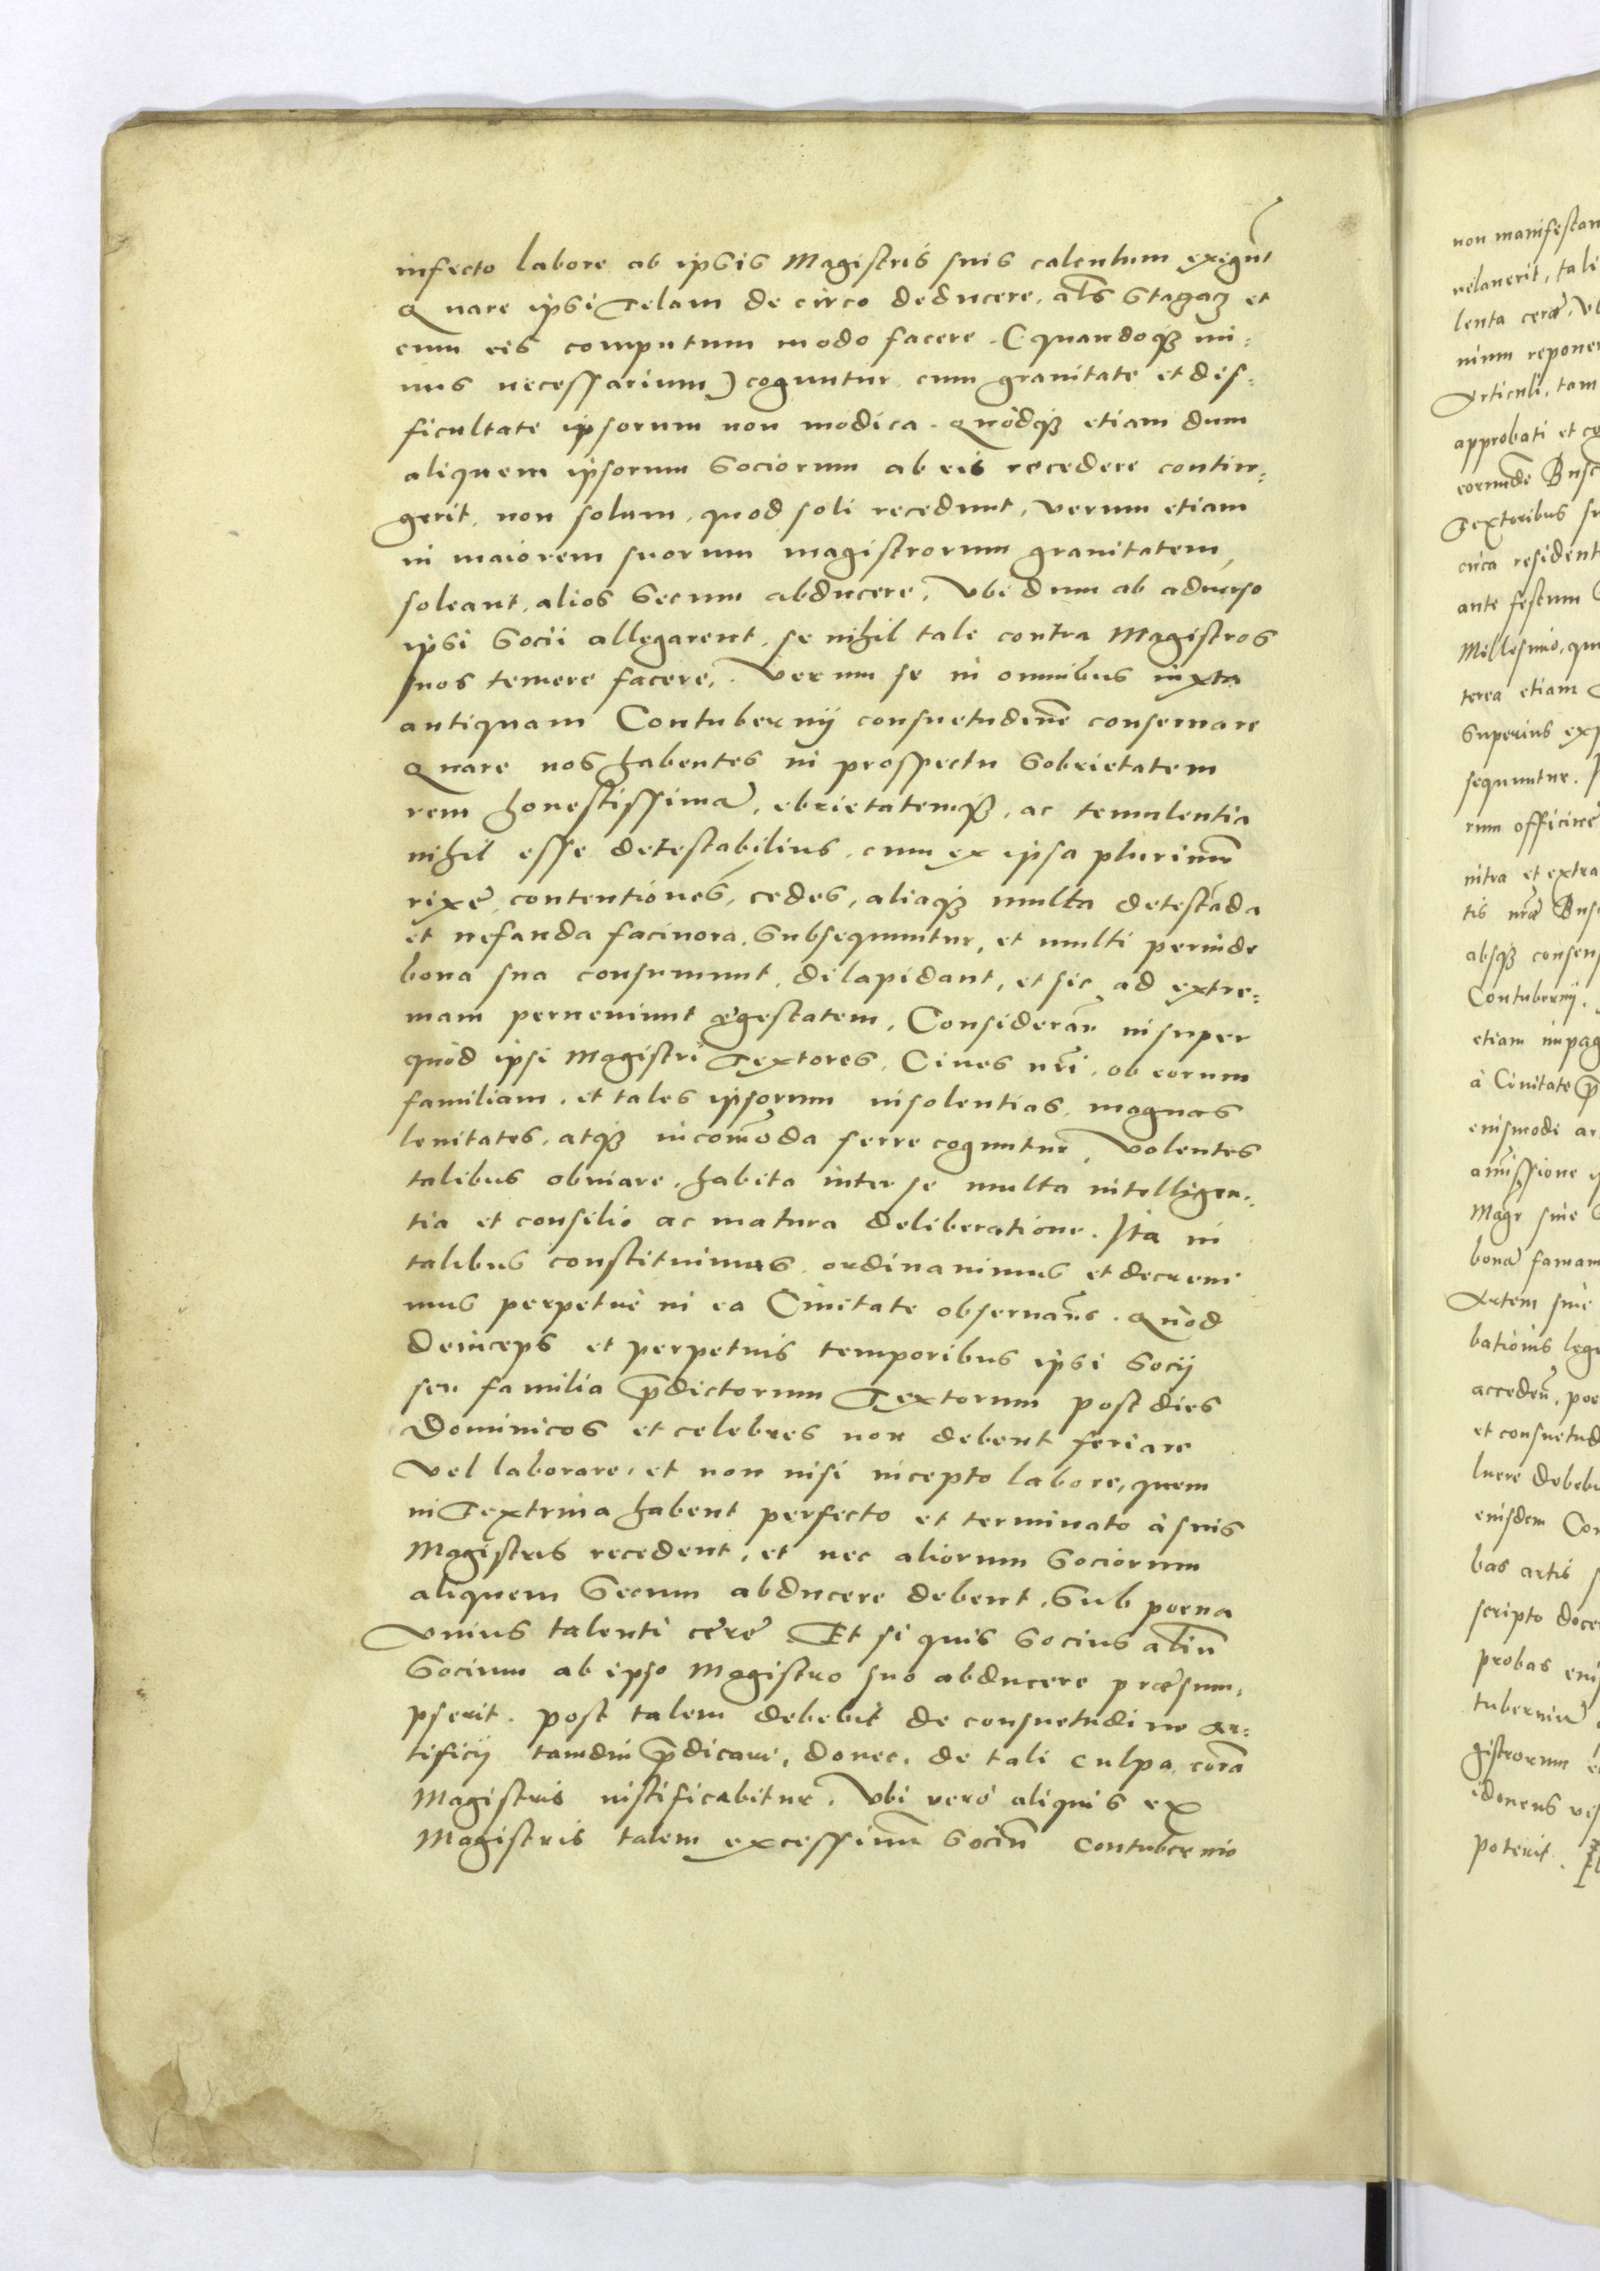 infecto labore ab ipsis Magistris suis calculum exigūt
Quare ipsi Telam de circo deducere, als stagacz et
cum eis computum modo facere (quandoqȝ mi-
nus necessarium) coguntur cum grauitate et dif-
ficultate ipsorum non modica. Quodqȝ etiam dum
aliquem ipsorum Sociorum ab eis recedere contin-
gerit, non solum, quod soli recedunt, verum etiam
in maiorem suorum magistrorum grauitatem,
soleant, alios secum abducere, Vbi dum ab aduerso
ipsi Socii allegarent, se nihil tale contra Magistros
suos temere facere, Verum se in omnibus iuxta
antiquam Contubernij consuetudinē conseruare
Quare nos habentes in prospectu Sobrietatem
rem honestissimā, ebrietatemqȝ, ac temulentia
nihil esse detestabilius, cum ex ipsa plurimū
rixe, contentiones, cedes, aliaqȝ multa detestāda
et nefanda facinora, subsequuntur, et multi perinde
bona sua consumunt, dilapidant, et sic ad extre-
mam perueniunt ęgestatem, Considerān insuper
quòd ipsi Magistri Textores, Ciues nr̄i, ob eorum
familiam, et tales ipsorum insolentias, magnas
leuitates, atqȝ incom̄oda ferre coguntur, Volentes
talibus obuiare, habita inter se multa intelligen-
tia et consilio ac matura deliberatione. Ita in
talibus constituimus, ordinauimus et decreui
mus perpetuè in ea Ciuitate obseruan̄s. Quòd
deinceps et perpetuis temporibus ipsi Socij
seu familia p̄dictorum Textorum post dies
Dominicos et celebres non debent feriare
Vel laborare, et non nisi incepto labore, quem
in Textrina habent perfecto et terminato à suis
Magistris recedent, et nec aliorum Sociorum
aliquem Secum abducere debent, Sub poena
Vnius talenti cerę Et si quis Socius aliū
Socium ab ipso Magistro suo abducere præsum-
pserit. post talem debebit de consuetudine Ar-
tificij tamdiu p̄dicari, donec, de tali culpa corā
Magistris iustificabitur. Vbi verò aliquis ex
Magistris talem excessiuū Sociū Contubernio
non manifestan
uelauerit, tali
lenta cerę, Vt
nium repone
Articuli, tam
approbati et
eorundē Busc
Textoribus su
circa resident
ante festum
Millesimo, qui
terea etiam
Superius exp
sequuntur.
rum officine
intra et extra
tis nr̄æ Bus
absqȝ consens
Contubernij.
etiam impag
à Ciuitate p̄
eiusmodi ar
am̄issione
Magr̄ siue
bonā famam
Artem siue
bationis legi
acceden̄, poe
et consuetud
luere debebi
eiusdem Con
bas artis
scripto doce
probas eius
tuberniū
gistrorum
idoneus
poterit.